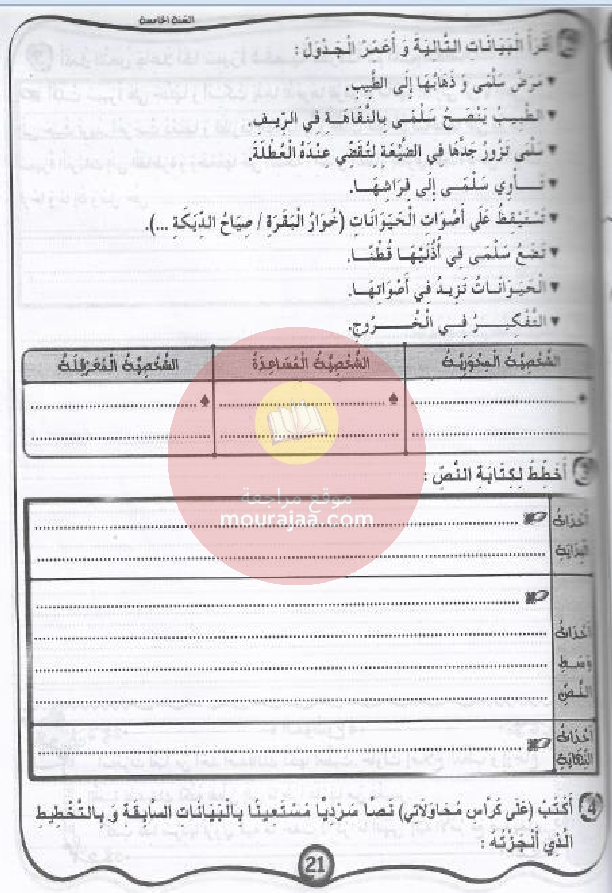 السنة الخامسة
أَقْرَأُ الْبَيَانَاتِ التَّالِيَةَ وَ أُعَمِّرُ الْجَدْوَلَ :
▾ مَرَضُ سَلْمَى وَ ذَهَابُهَا إِلَى الطَّبِيبِ.
▾ الطَّبِيبُ يَنْصَحُ سَلْمَى بِالنَّقَاهَةِ فِي الرِّيفِ.
▾ سَلْمَى تَزُورُ جَدَّهَا فِي الضَّيْعَةِ لِتَقْضِي عِنْدَهُ الْعُطْلَةَ.
▾ تَأْوِي سَلْمَى إِلَى فِرَاشِهَا.
▾ تَسْتَيْقِظُ عَلَى أَصْوَاتِ الْحَيَوَانَاتِ (خُوَارُ الْبَقَرَةِ / صِيَاحُ الدِّيَكَةِ ...).
▾ تَضَعُ سَلْمَى فِي أُذُنَيْهَا قُطْنًا.
▾ الْحَيَوَانَاتُ تَزِيدُ فِي أَصْوَاتِهَا.
▾ التَّفْكِيرُ فِي الْخُرُوجِ.
الشَّخْصِيَّةُ الْمِحْوَرِيَّةُ الشَّخْصِيَّةُ الْمُسَاعِدَةُ الشَّخْصِيَّةُ الْمُعَرْقِلَةُ
أُخَطِّطُ لِكِتَابَةِ النَّصِّ :
موقع مراجعة
mourajaa.com
أَحْدَاثُ
الْبِدَايَةِ
أَحْدَاثُ
وَسَطِ
النَّصِّ
أَحْدَاثُ
النِّهَايَةِ
4 أَكْتُبُ (عَلَى كَرَّاسِ مُحَاوَلَاتِي) نَصًّا سَرْدِيًّا مُسْتَعِينًا بِالْبَيَانَاتِ السَّابِقَةِ وَ بِالتَّخْطِيطِ
الَّذِي أَنْجَزْتُهُ :
21